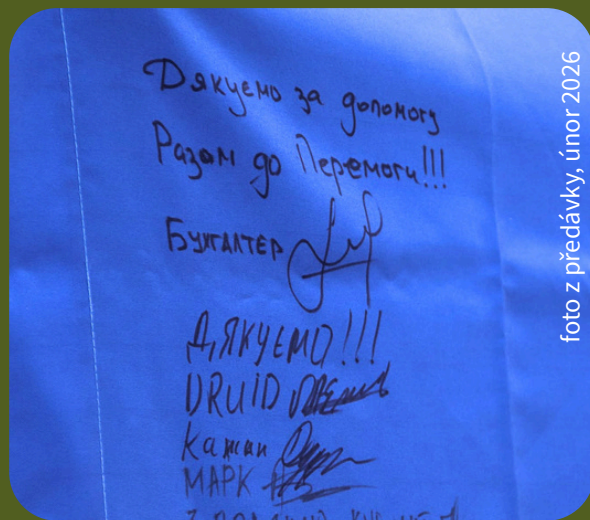 Дякуємо за допомогу
Разом до Перемоги!!!
Бухгалтер
ДЯКУЄМО!!!
DRUID
Кажан
МАРК
foto z předávky, únor 2026